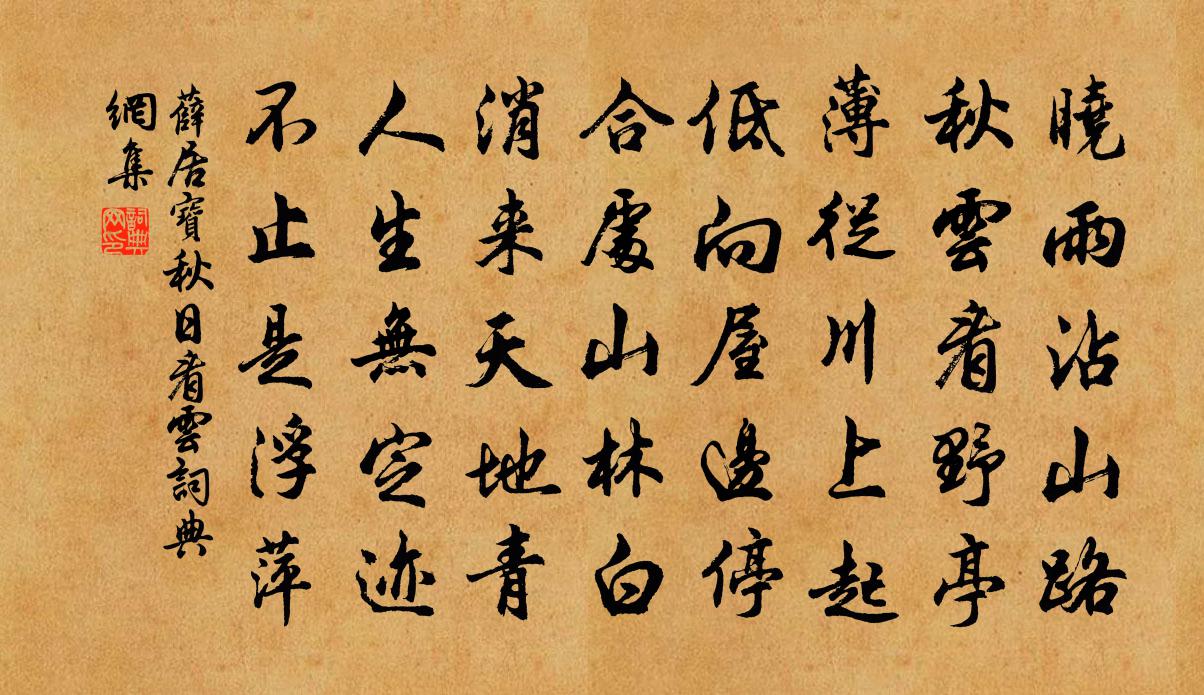 曉雨沾山路
秋雲看野亭
薄從川上起
低向屋邊停
合處山林白
消来天地青
人生無定迹
不止是浮萍
薛居寶秋日看雲詞典
網集
詞典
网印